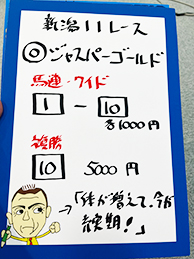 新潟11レース
◎ジャスパーゴールド
馬連・ワイド
1 － 10
各1000円
複勝
10 5000円
→「体が増えて、今が
充実期！」